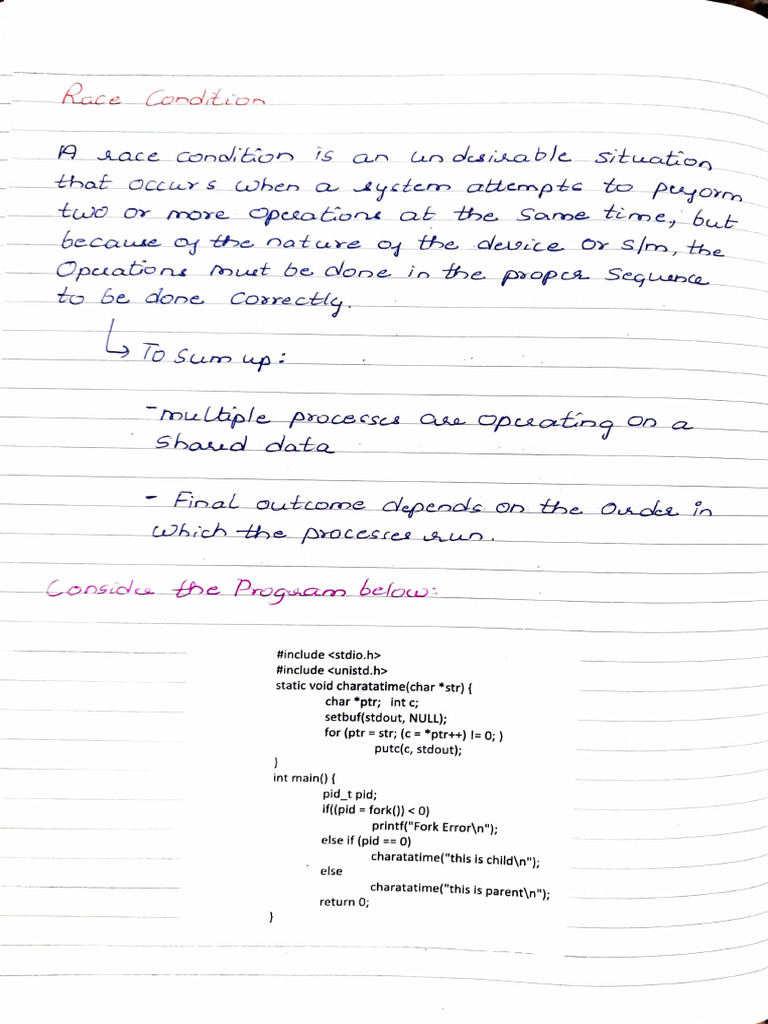 Race Condition
A race condition is an undesirable situation
that occurs when a system attempts to perform
two or more operations at the same time, but
because of the nature of the device or s/m, the
Operations must be done in the proper sequence
to be done correctly.
↳ To sum up:
- multiple processes are operating on a
shared data
- Final outcome depends on the order in
which the processes run.
Consider the Program below:
#include <stdio.h>
#include <unistd.h>
static void charatatime(char *str) {
char *ptr; int c;
setbuf(stdout, NULL);
for (ptr = str; (c = *ptr++) != 0; )
putc(c, stdout);
}
int main() {
pid_t pid;
if((pid = fork()) < 0)
printf("Fork Error\n");
else if (pid == 0)
charatatime("this is child\n");
else
charatatime("this is parent\n");
return 0;
}